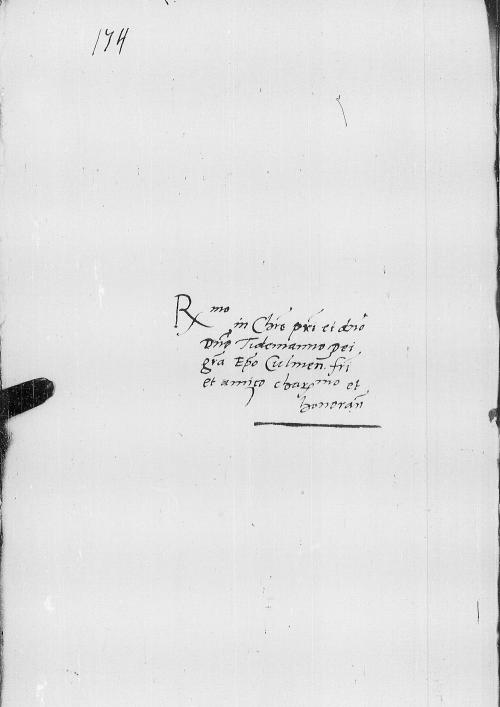 174
Rmo
in Chro pri et dno
Dno Tidemanno Dei
gra Epo Culmen. fri
et amico charmo et
honoran